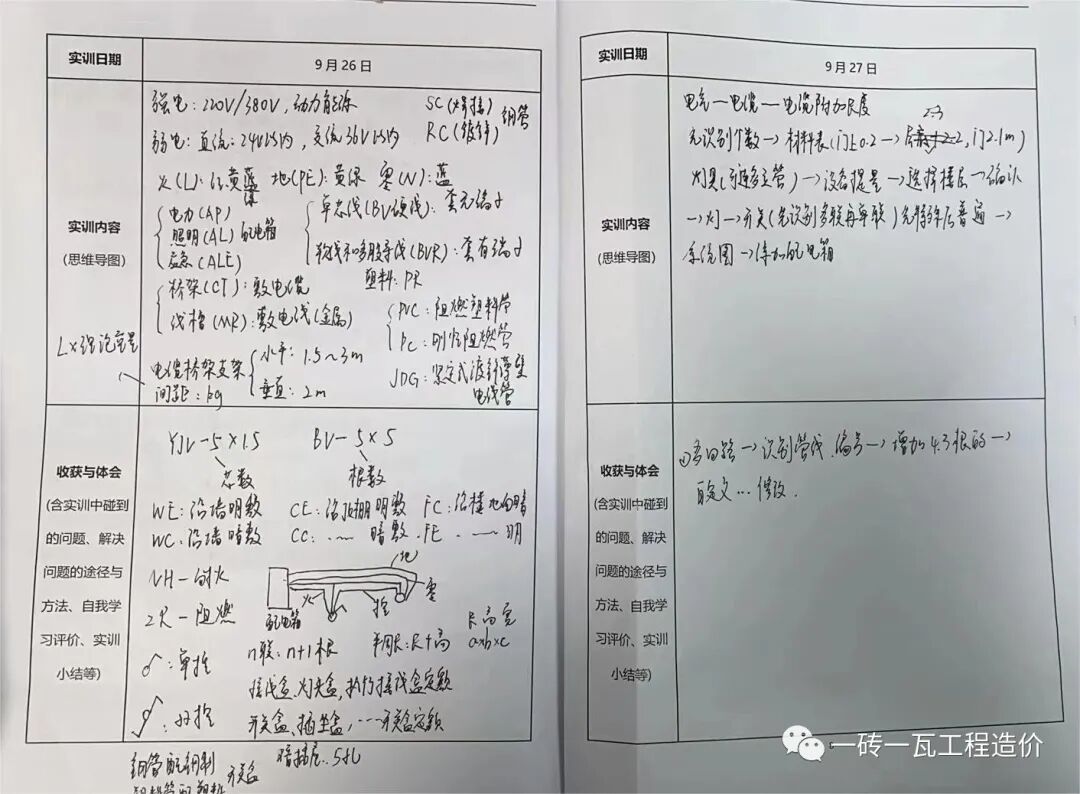 实训日期
9月26日
实训内容
(思维导图)
强电：220V/380V，动力能源
SC(焊接) 钢管
RC(镀锌)
弱电：直流：24V以内，交流36V以内
火(L)：红黄蓝绿 地(PE)：黄绿 零(N)：蓝
电力(AP)
照明(AL) 配电箱
应急(ALE)
单芯线(BV硬线)：套无端子
软线和多股导线(BVR)：套有端子
桥架(CT)：敷电缆
塑料：PR
线槽(MR)：敷电线(金属)
PVC：阻燃塑料管
PC：刚性阻燃管
JDG：紧定式镀锌薄壁
电线管
L×理论重量
电缆桥架支架
间距：kg
水平：1.5~3m
垂直：2m
收获与体会
(含实训中碰到
的问题、解决
问题的途径与
方法、自我学
习评价、实训
小结等)
YJV-5×1.5
BV-5×5
芯数
根数
WE：沿墙明敷 CE：沿顶棚明敷 FC：沿楼地面暗
WC：沿墙暗敷 CC：…… 暗敷 FE …… 明
NH-耐火
ZR-阻燃
地
零
火
控
配电箱
长高宽
a×b×c
n联：n+1根 半周长：长+高
：单控
：双控
接线盒、灯头盒，执行接线盒定额
开关盒、插座盒，…开关盒定额
暗插底..
钢管配钢制
开关盒
实训日期
9月27日
实训内容
(思维导图)
电气—电缆—电缆附加长度
先识别个数→材料表(门上0.2→ 2.3，门2.1m)
灯具(立管)→设备提量→选择楼层→确认
→灯→开关(先识别多联再单联)先特殊后普遍→
系统图→添加配电箱
收获与体会
(含实训中碰到
的问题、解决
问题的途径与
方法、自我学
习评价、实训
小结等)
①多回路→识别管线、编号→增加4.3根的→
自定义…修改.
一砖一瓦工程造价